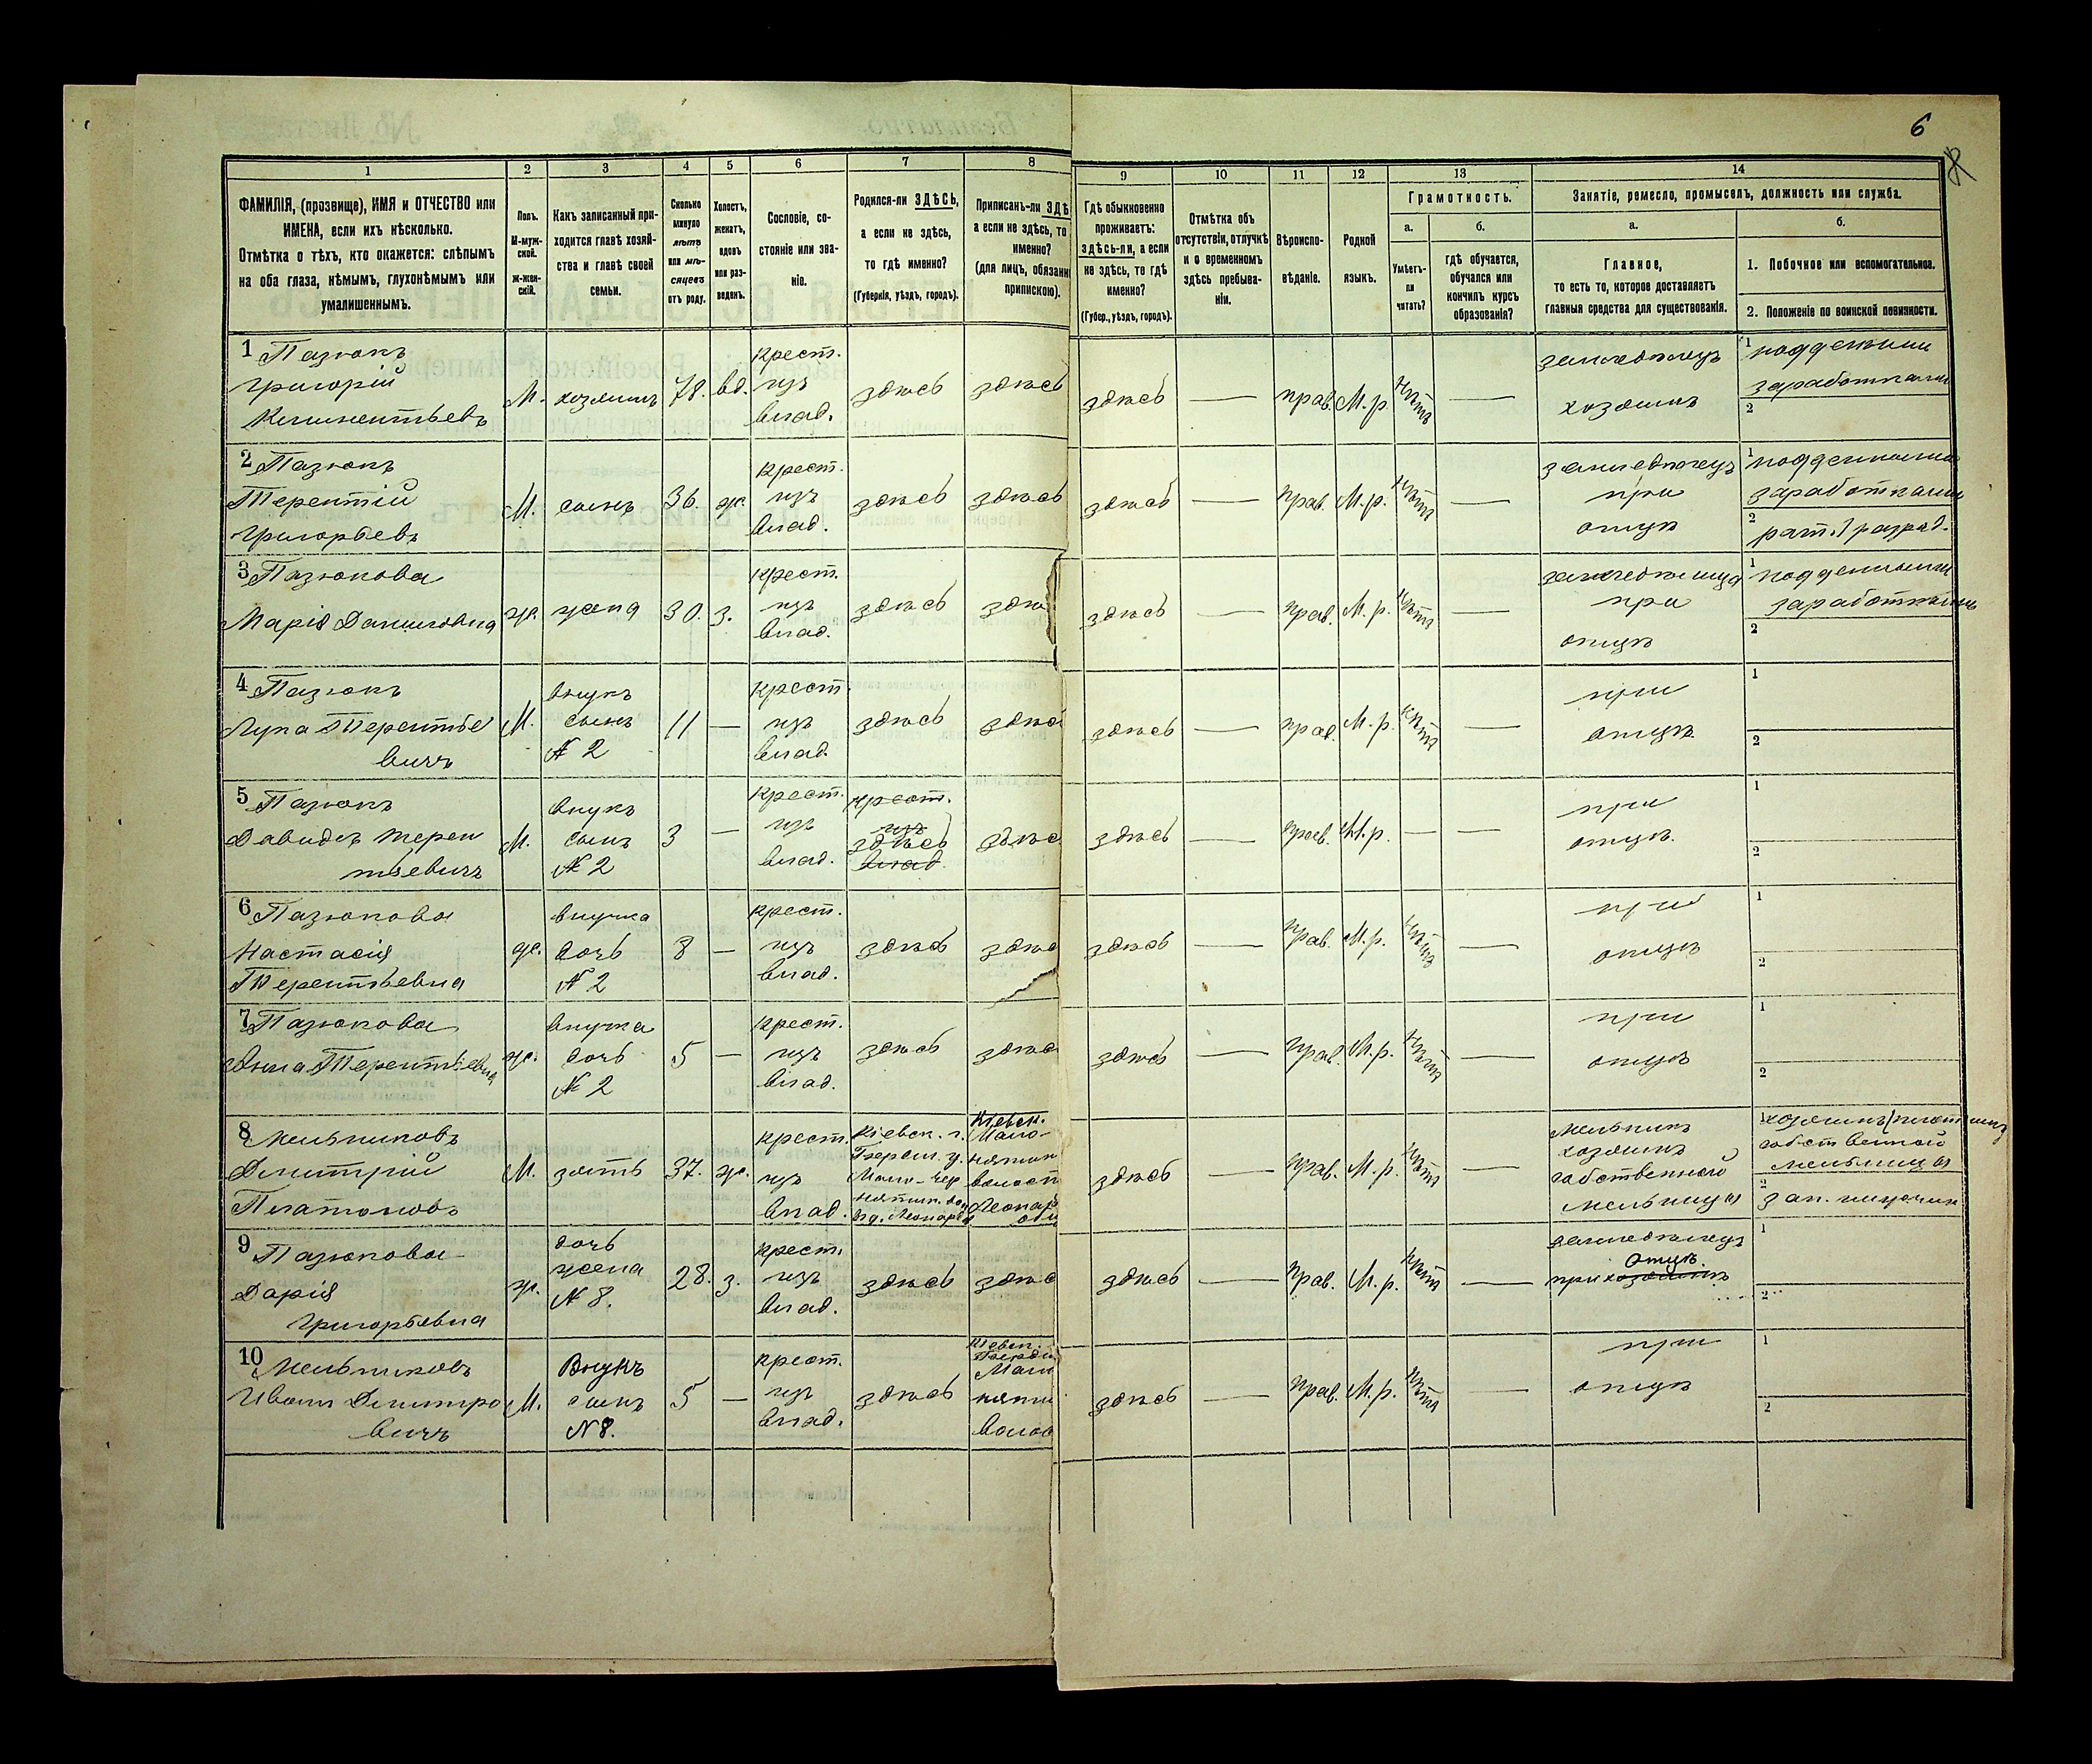 6
1
2
3
4
5
6
7
8
9
10
11
12
13
14
ФАМИЛІЯ, (прозвище), ИМЯ и ОТЧЕСТВО или
ИМЕНА, если ихъ нѣсколько.
Отмѣтка о тѣхъ, кто окажется: слѣпымъ
на оба глаза, нѣмымъ, глухонѣмымъ или
умалишеннымъ.
Полъ.
М-муж-
ской.
ж-жен-
скій.
Какъ записанный при-
ходится главѣ хозяй-
ства и главѣ своей
семьи.
Сколько
минуло
лѣтъ
или мѣ-
сяцевъ
отъ роду.
Холостъ,
женатъ,
вдовъ
или раз-
веденъ.
Сословіе, со-
стояніе или зва-
ніе.
Родился-ли ЗДѢСЬ,
а если не здѣсь,
то гдѣ именно?
(Губернія, уѣздъ, городъ).
Приписанъ-ли ЗДѢ
а если не здѣсь, то
именно?
(для лицъ, обязанн
припискою).
Гдѣ обыкновенно
проживаетъ:
здѣсь-ли, а если
не здѣсь, то гдѣ
именно?
(Губер., уѣздъ, городъ).
Отмѣтка объ
отсутствіи, отлучкѣ
и о временномъ
здѣсь пребыва-
ніи.
Вѣроиспо-
вѣданіе.
Родной
языкъ.
Грамотность.
а.
Умѣетъ-
ли
читать?
б.
гдѣ обучается,
обучался или
кончилъ курсъ
образованія?
Занятіе, ремесло, промыселъ, должность или служба.
а.
Главное,
то есть то, которое доставляетъ
главныя средства для существованія.
б.
1. Побочное или вспомогательное.
2. Положеніе по воинской повинности.
1 Пазюкъ
Григорій
Климентьевъ
М.
хозяинъ
78.
вд.
крест.
изъ
влад.
здѣсь
здѣсь
здѣсь
—
прав.
М.р.
нѣтъ
—
земледѣлецъ
хозяинъ
1 подденными
заработками
2
2 Пазюкъ
Терентій
Григорьевъ
М.
сынъ
36.
ж.
крест.
изъ
влад.
здѣсь
здѣсь
здѣсь
—
прав.
М.р.
нѣтъ
—
земледѣлецъ
при
отцѣ
1 подденными
заработками
2 рат. 1 разряд.
3 Пазюкова
Марія Даниловна
ж.
жена
30.
з.
крест.
изъ
влад.
здѣсь
здѣс
здѣсь
—
прав.
М.р.
нѣтъ
—
земледѣлица
при
отцѣ
1 подденными
заработками
2
4 Пазюкъ
Лука Терентье
вичъ
М.
внукъ
сынъ
№ 2
11
—
крест.
изъ
влад.
здѣсь
здѣс
здѣсь
—
прав.
М.р.
нѣтъ
—
при
отцѣ
1
2
5 Пазюкъ
Давидъ Терен
тьевичъ
М.
внукъ
сынъ
№ 2
3
—
крест.
изъ
влад.
крест.
изъ
здѣсь
влад.
здѣс
здѣсь
—
прав.
М.р.
—
—
при
отцѣ.
1
2
6 Пазюкова
Настасія
Терентьевна
ж.
внучка
дочь
№ 2
8
—
крест.
изъ
влад.
здѣсь
здѣс
здѣсь
—
прав.
М.р.
нѣтъ
—
при
отцѣ
1
2
7 Пазюкова
Анна Терентьевна
ж.
внучка
дочь
№ 2
5
—
крест.
изъ
влад.
здѣсь
здѣс
здѣсь
—
прав.
М.р.
нѣтъ
—
при
отцѣ
1
2
8 Мельниковъ
Дмитрій
Платоновъ
М.
зять
37.
ж.
крест.
изъ
влад.
Кіевск. г.
Мало-Чер
Кіевск.
Мало-
волост
здѣсь
—
прав.
М.р.
нѣтъ
—
мельникъ
хозяинъ
собственной
мельницы
1 хозяинъ
собственной
мельницы
2 зап.
9 Пазюкова
Дарія
Григорьевна
ж.
дочь
жена
№ 8.
28.
з.
крест.
изъ
влад.
здѣсь
здѣс
здѣсь
—
прав.
М.р.
нѣтъ
—
земледѣлецъ
отцѣ.
при хозяинѣ
1
2
10 Мельниковъ
Иванъ Дмитро
вичъ
М.
Внукъ
сынъ
№ 8.
5
—
крест.
изъ
влад.
здѣсь
Кіевск.
Мало
волос
здѣсь
—
прав.
М.р.
нѣтъ
—
при
отцѣ
1
2